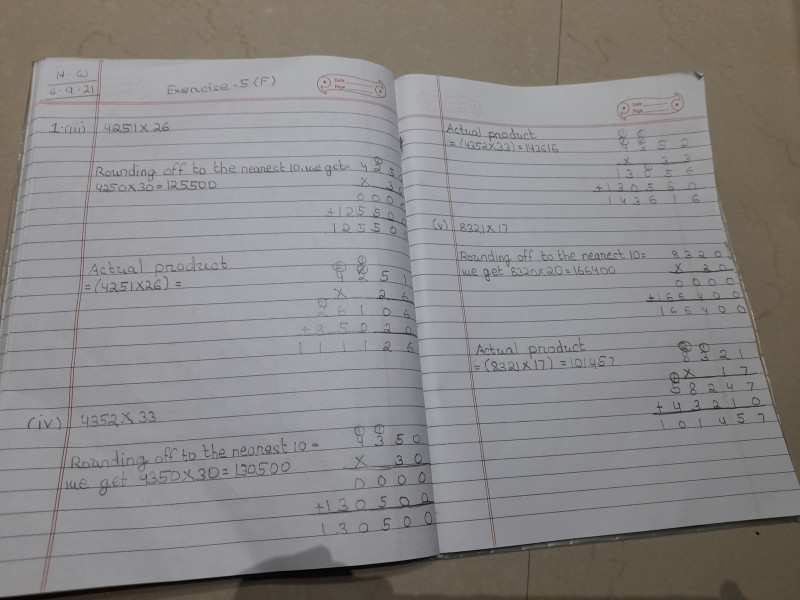 H.W
6.9.21
Exercise-5(F)
Date
Page
1.(iii) 4251X26
Rounding off to the nearest 10, we get=
4250X30=125500
4 2 5
X 3 0
0 0 0 0
+1 2 5 5 0 0
1 2 5 5 0 0
Actual product
=(4251X26)=
4 2 5 1
X 2 6
2 6 1 0 6
+ 8 5 0 2 0
1 1 1 1 2 6
(iv) 4352X33
Rounding off to the nearest 10=
we get 4350X30=130500
1 1
4 3 5 0
X 3 0
0 0 0 0
+1 3 0 5 0 0
1 3 0 5 0 0
Date
Page
Actual product
=(4352X33)=143616
4 3 5 2
X 3 3
1 3 0 5 6
+1 3 0 5 6 0
1 4 3 6 1 6
(v) 8321X17
Rounding off to the nearest 10=
we get 8320X20=166400
8 3 2 0
X 2 0
0 0 0 0
+1 6 6 4 0 0
1 6 6 4 0 0
Actual product
=(8321X17)=101457
8 3 2 1
X 1 7
5 8 2 4 7
+ 4 3 2 1 0
1 0 1 4 5 7